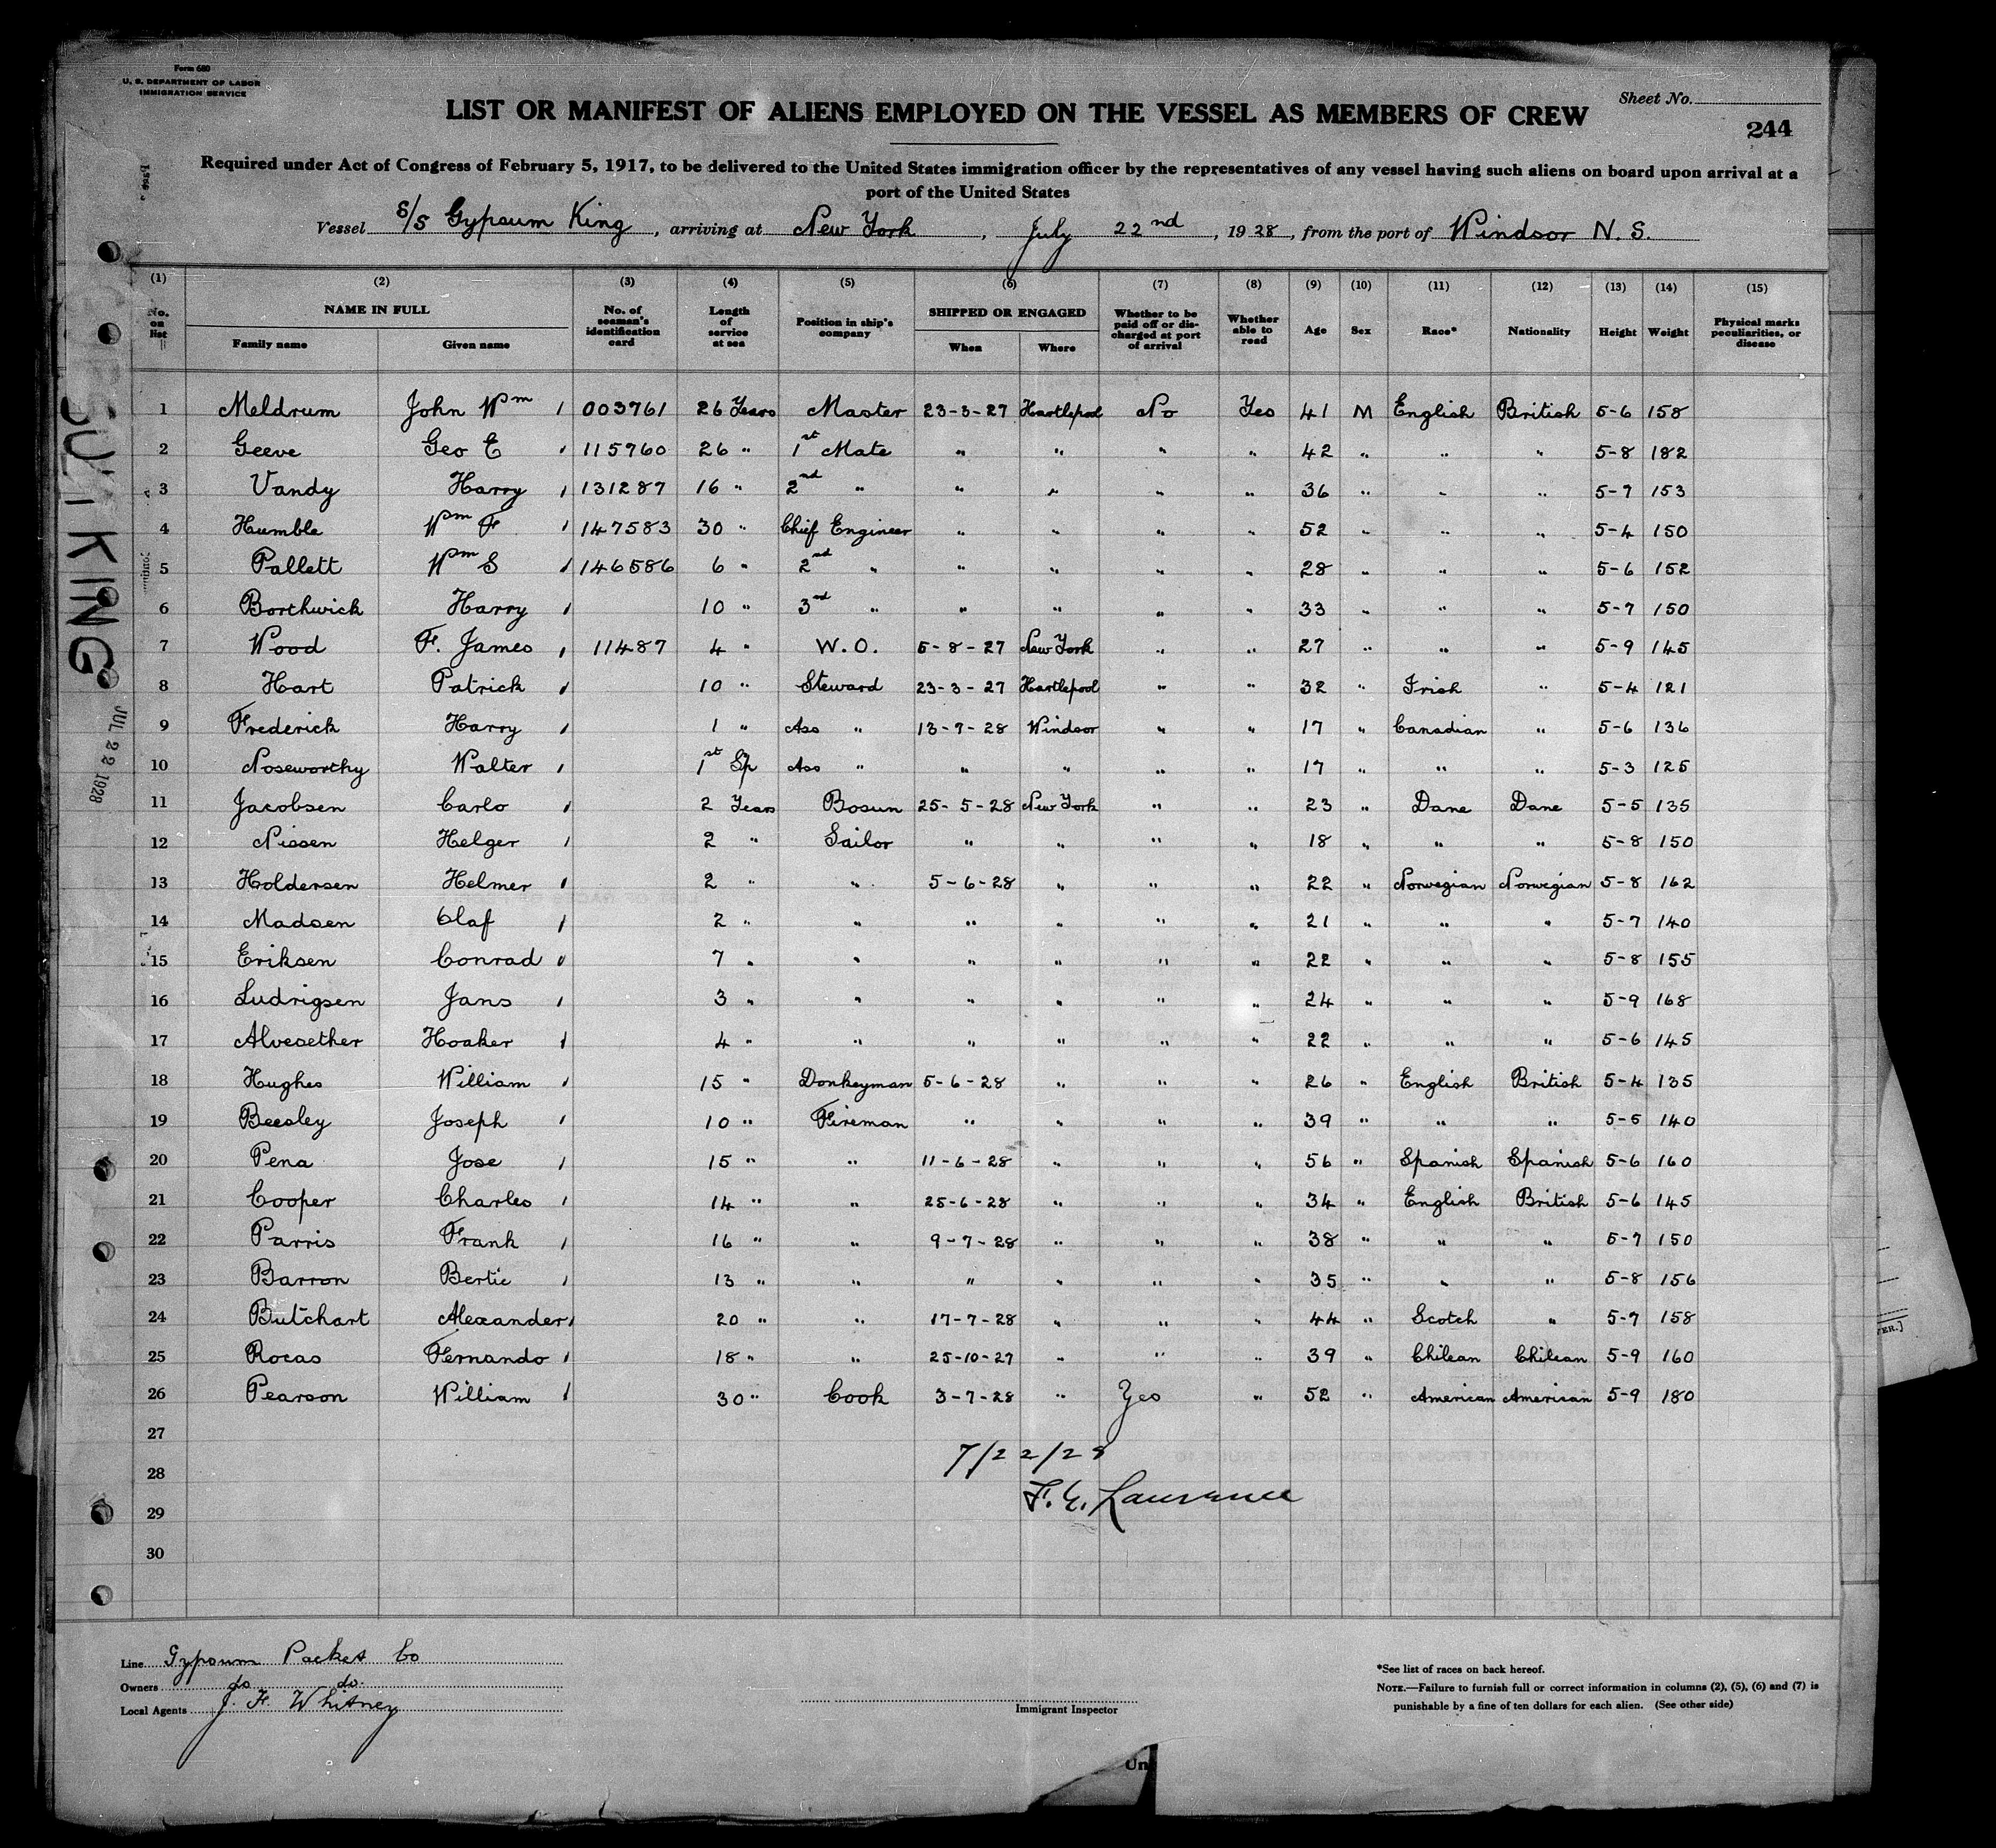 Form 680
U. S. DEPARTMENT OF LABOR
IMMIGRATION SERVICE
Sheet No.
LIST OR MANIFEST OF ALIENS EMPLOYED ON THE VESSEL AS MEMBERS OF CREW
244
Required under Act of Congress of February 5, 1917, to be delivered to the United States immigration officer by the representatives of any vessel having such aliens on board upon arrival at a
port of the United States
Vessel S/S Gypsum King, arriving at New York, July 22nd, 1928, from the port of Windsor N. S.
(1) (2) (3) (4) (5) (6) (7) (8) (9) (10) (11) (12) (13) (14) (15)
No. on list NAME IN FULL Family name Given name No. of seaman's identification card Length of service at sea Position in ship's company SHIPPED OR ENGAGED When Where Whether to be paid off or discharged at port of arrival Whether able to read Age Sex Race* Nationality Height Weight Physical marks peculiarities, or disease
1 Meldrum John Wm 003761 26 Years Master 23-3-27 Hartlepool No Yes 41 M English British 5-6 158
2 Geeve Geo E 115760 26 " 1st Mate " " " " 42 " " " 5-8 182
3 Vandy Harry 131287 16 " 2nd " " " " " 36 " " " 5-7 153
4 Humble Wm F 147583 30 " Chief Engineer " " " " 52 " " " 5-4 150
5 Pallett Wm S 146586 6 " 2nd " " " " " 28 " " " 5-6 152
6 Borthwick Harry 10 " 3rd " " " " " 33 " " " 5-7 150
7 Wood F. James 11487 4 " W.O. 5-8-27 New York " " 27 " " " 5-9 145
8 Hart Patrick 10 " Steward 23-3-27 Hartlepool " " 32 " Irish " 5-4 121
9 Frederick Harry 1 " Ass " 13-7-28 Windsor " " 17 " Canadian " 5-6 136
10 Noseworthy Walter 1st Sp Ass " " " " " 17 " " " 5-3 125
11 Jacobsen Carlo 2 Years Bosun 25-5-28 New York " " 23 " Dane Dane 5-5 135
12 Nissen Helger 2 " Sailor " " " " 18 " " " 5-8 150
13 Holdersen Helmer 2 " " 5-6-28 " " " 22 " Norwegian Norwegian 5-8 162
14 Madsen Olaf 2 " " " " " " 21 " " " 5-7 140
15 Eriksen Conrad 7 " " " " " " 22 " " " 5-8 155
16 Ludrigsen Jans 3 " " " " " " 24 " " " 5-9 168
17 Alvesether Hoaker 4 " " " " " " 22 " " " 5-6 145
18 Hughes William 15 " Donkeyman 5-6-28 " " " 26 " English British 5-4 135
19 Beesley Joseph 10 " Fireman " " " " 39 " " " 5-5 140
20 Pena Jose 15 " " 11-6-28 " " " 56 " Spanish Spanish 5-6 160
21 Cooper Charles 14 " " 25-6-28 " " " 34 " English British 5-6 145
22 Parris Frank 16 " " 9-7-28 " " " 38 " " " 5-7 150
23 Barron Bertie 13 " " " " " " 35 " " " 5-8 156
24 Butchart Alexander 20 " " 17-7-28 " " " 44 " Scotch " 5-7 158
25 Rocas Fernando 18 " " 25-10-27 " " " 39 " Chilean Chilean 5-9 160
26 Pearson William 30 " Cook 3-7-28 " Yes " 52 " American American 5-9 180
27
28
29
30
7/22/28
F. E. Lawrence
KING
JUL 22 1928
Line Gypsum Packet Co
Owners do do.
Local Agents J. F. Whitney
Immigrant Inspector
*See list of races on back hereof.
NOTE.—Failure to furnish full or correct information in columns (2), (5), (6) and (7) is
punishable by a fine of ten dollars for each alien. (See other side)
Un
VER.]